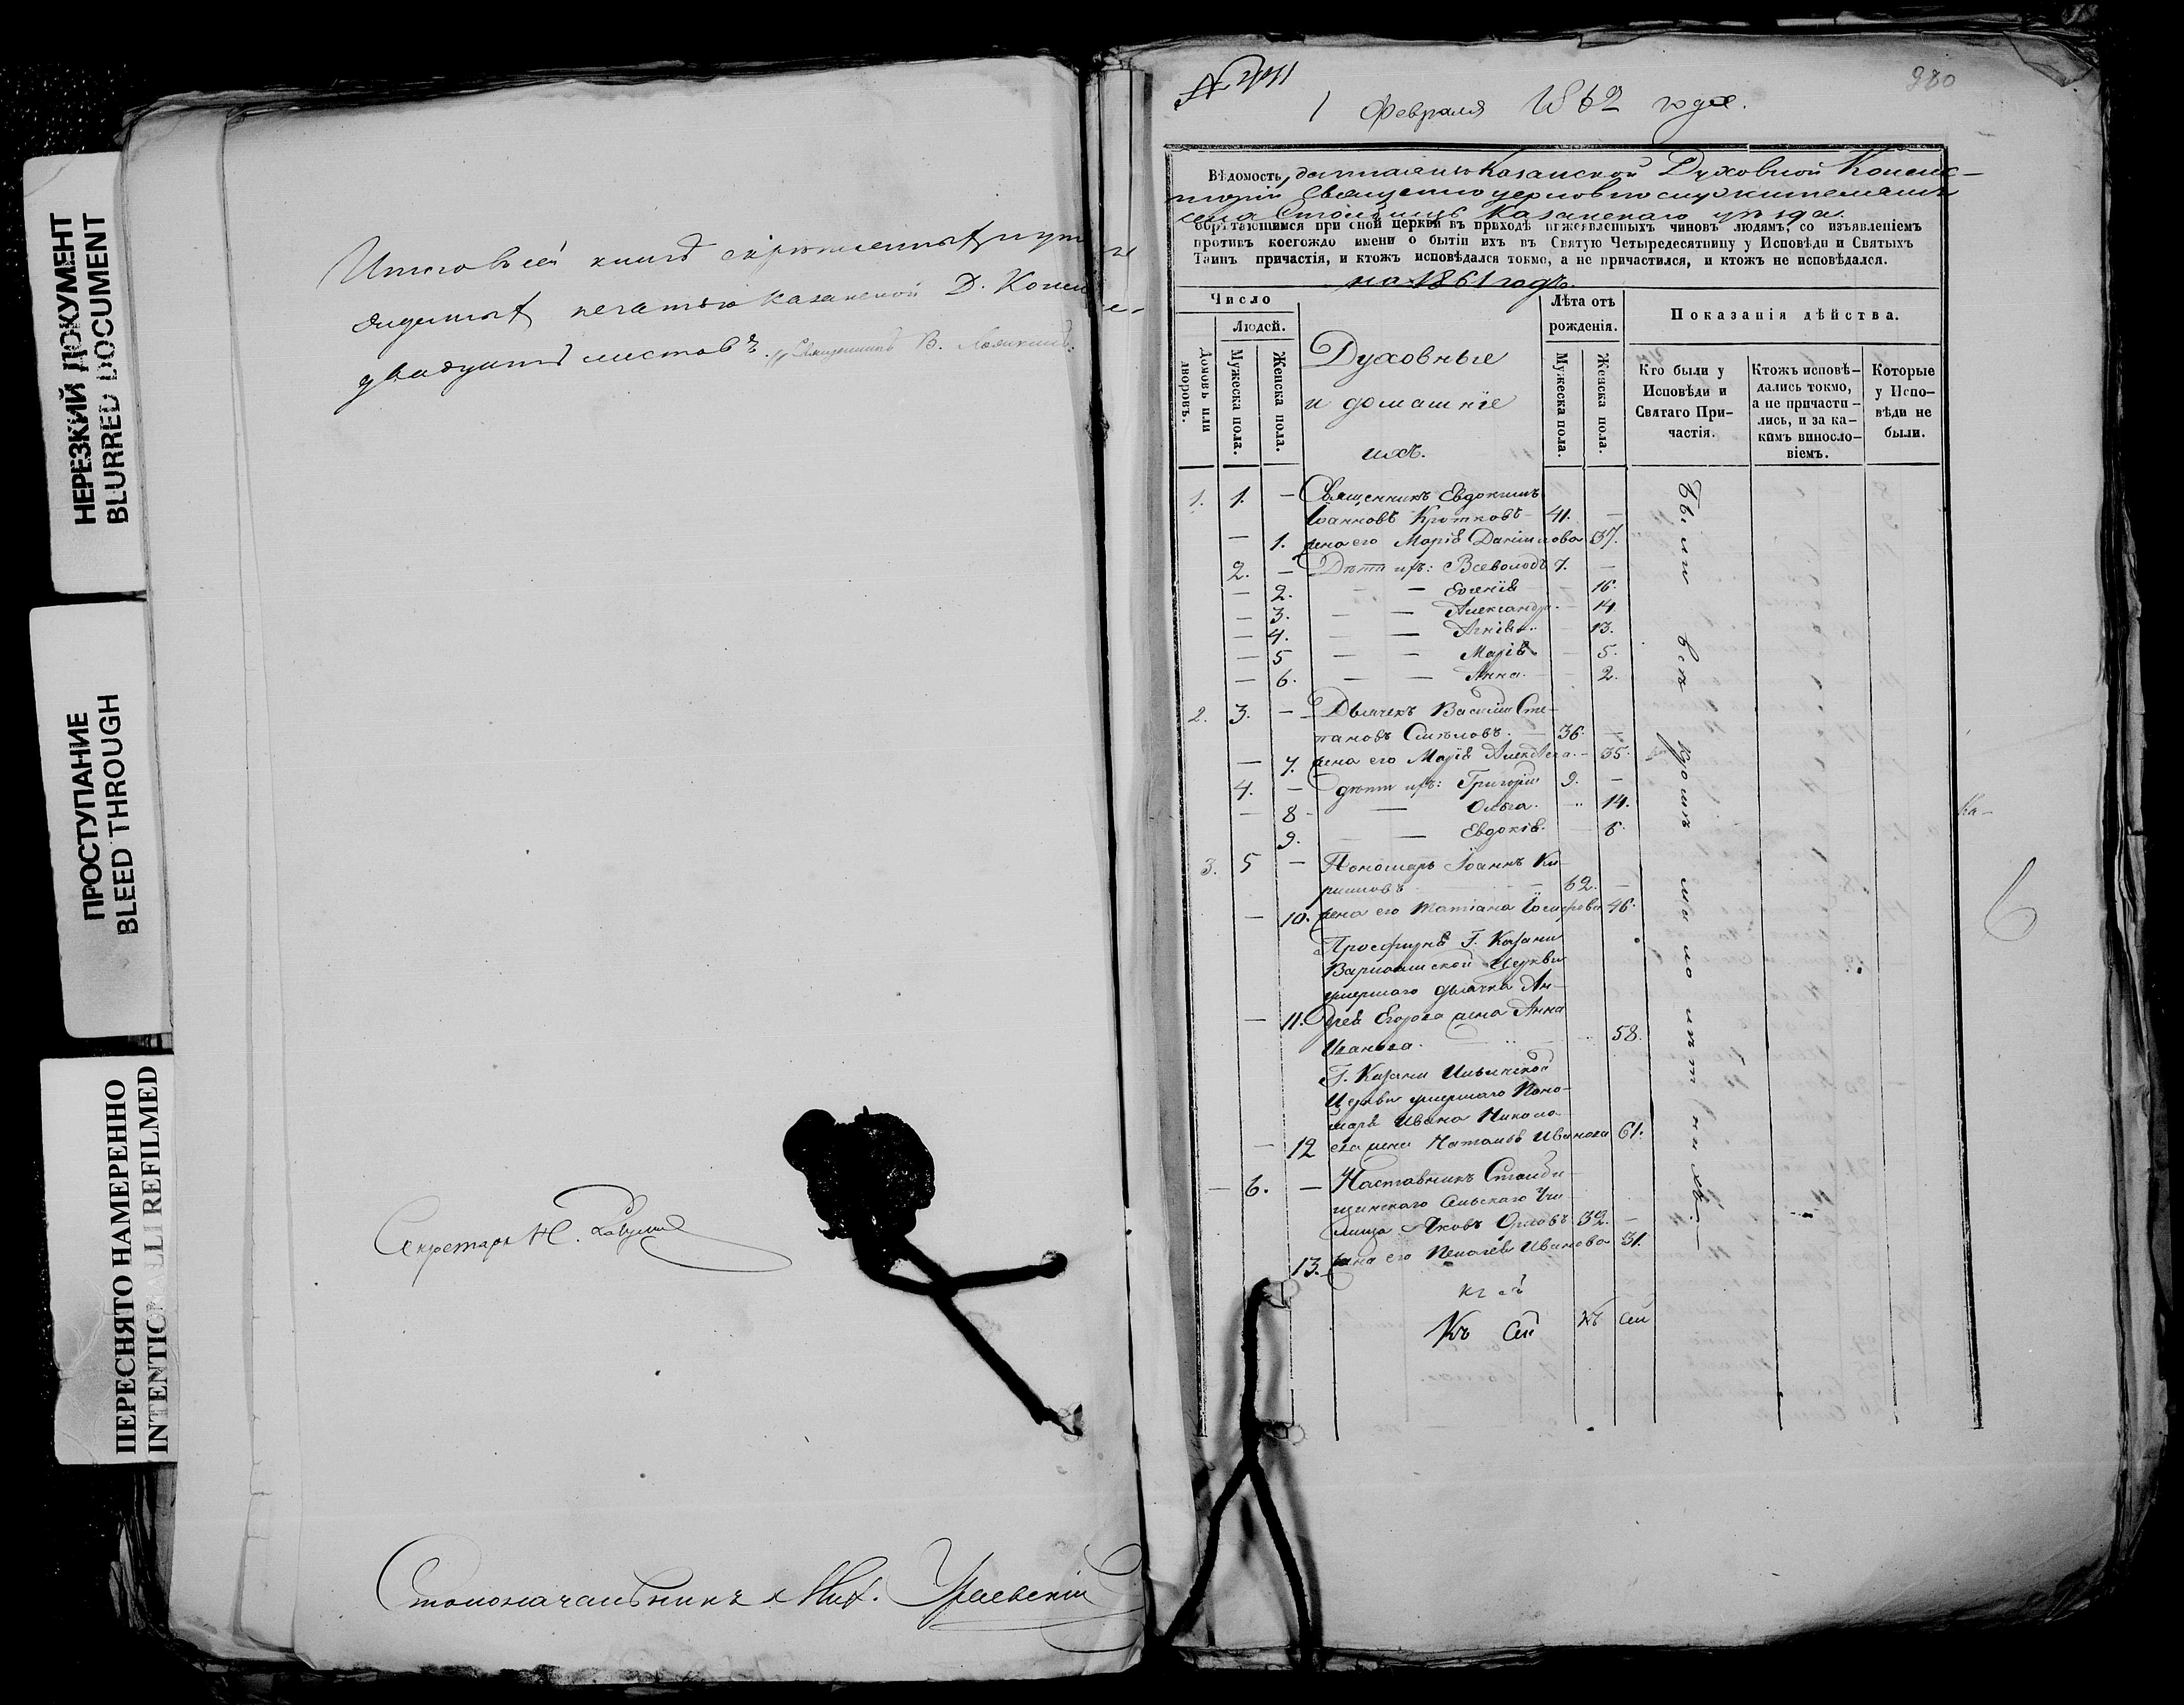 НЕРЕЗКИЙ ДОКУМЕНТ
BLURRED DOCUMENT
ПРОСТУПАНИЕ
BLEED THROUGH
ПЕРЕСНЯТО НАМЕРЕННО
INTENTIONALLI REFILMED
Итого въ сей книгѣ скрѣпленныхъ
печатью Казанской Д.
двадцать листовъ. Священникъ В.
Секретарь Н.
Столоначальникъ Мих.
380
1 Февраля 1862 года.
Вѣдомость, данная изъ Казанской Духовной Консис-
торіи Священно церковно служителямъ
села Столбищъ Казанскаго уѣзда.
обрѣтающимся при оной церкви въ приходѣ нижеявленныхъ чиновъ людямъ, со изъявленіемъ
противъ коегождо имени о бытіи ихъ въ Святую Четыредесятницу у Исповѣди и Святыхъ
Таинъ причастія, и ктожъ исповѣдался токмо, а не причастился, и ктожъ не исповѣдался.
на 1861 годъ.
Число
Людей.
Домовъ или дворовъ.
Мужеска пола.
Женска пола.
Духовные
и домашніе
ихъ.
Лѣта отъ рожденія.
Мужеска пола.
Женска пола.
Показанія дѣйства.
Кто были у Исповѣди и Святаго Причастія.
Ктожъ исповѣ-дались токмо, а не причасти-лись, и за ка-кимъ винословіемъ.
Которые у Испо-вѣди не были.
1. 1. — Священникъ Евдокимъ
Іоанновъ Кротковъ 41. —
— 1. жена его Марія Даніилова 37.
2. — Дѣти ихъ: Всеволодъ 7. —
— 2. — — Евгенія 16.
— 3. — — Александра. 14.
— 4. — — Агнія. 13.
— 5 — — Марія 5.
— 6. — — Анна. 2.
2. 3. — Дьячекъ Василій Сте-
пановъ Смѣловъ. — 36. —
— 7. жена его Марія Алексѣева. — 35.
4. — дѣти ихъ: Григорій 9. —
— 8 — Ольга. 14.
9. — — Евдокія. 6.
3. 5 — Пономарь Іоаннъ Ки-
рилловъ — 62. —
— 10. жена его Татіана Іосифова 46.
Просфирня Г. Казани
Варламской Церкви
умершаго дьячка Ан-
— 11. дрея Егорова жена Анна
Иванова. 58.
Г. Казани Ильинской
Церкви умершаго Поно-
маря Ивана Никола-
— 12 ева жена Наталья Иванова 61.
— 6. — Наставникъ Столби-
щинскаго Сельскаго Учи-
лища Яковъ Орловъ. 32. —
13. жена его Пелагея Иванова 31.
Были всѣ кромѣ малолѣтнихъ.
Къ сей
Къ сей
Ка-
6